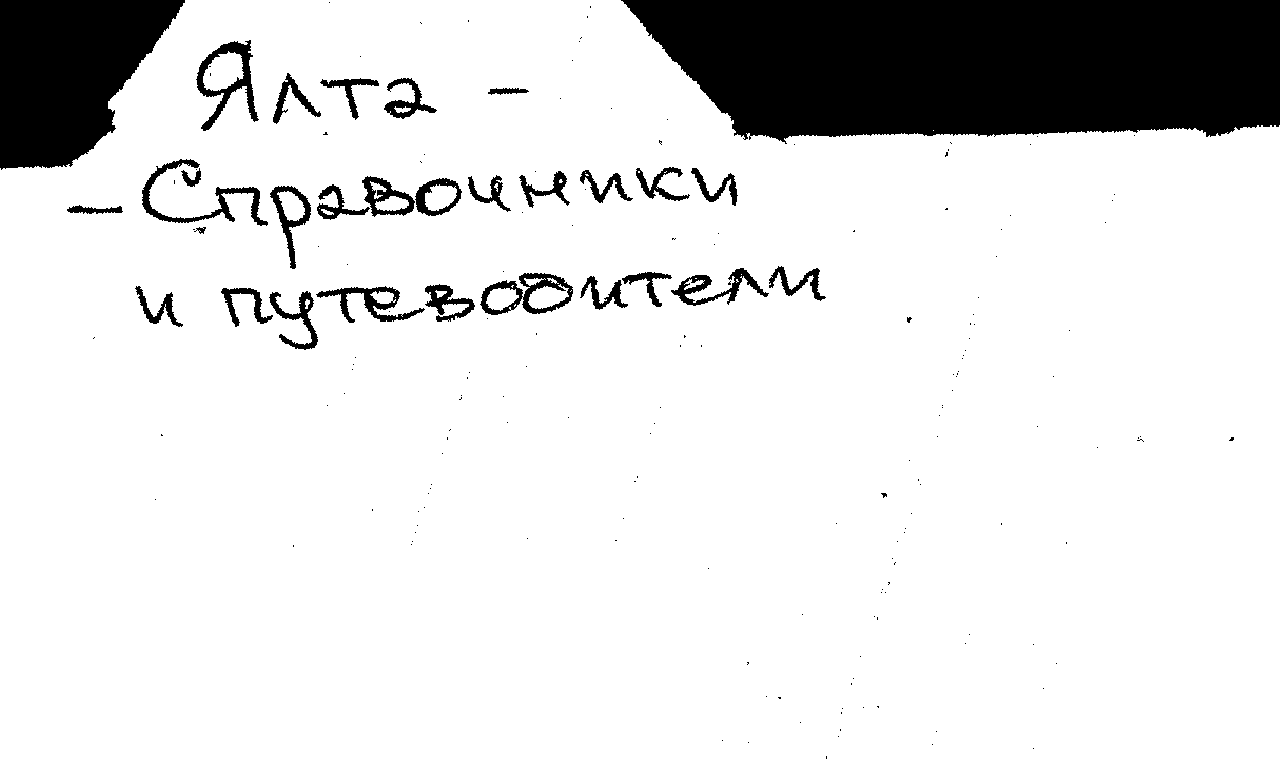 Ялта -
- Справочники
и путеводители